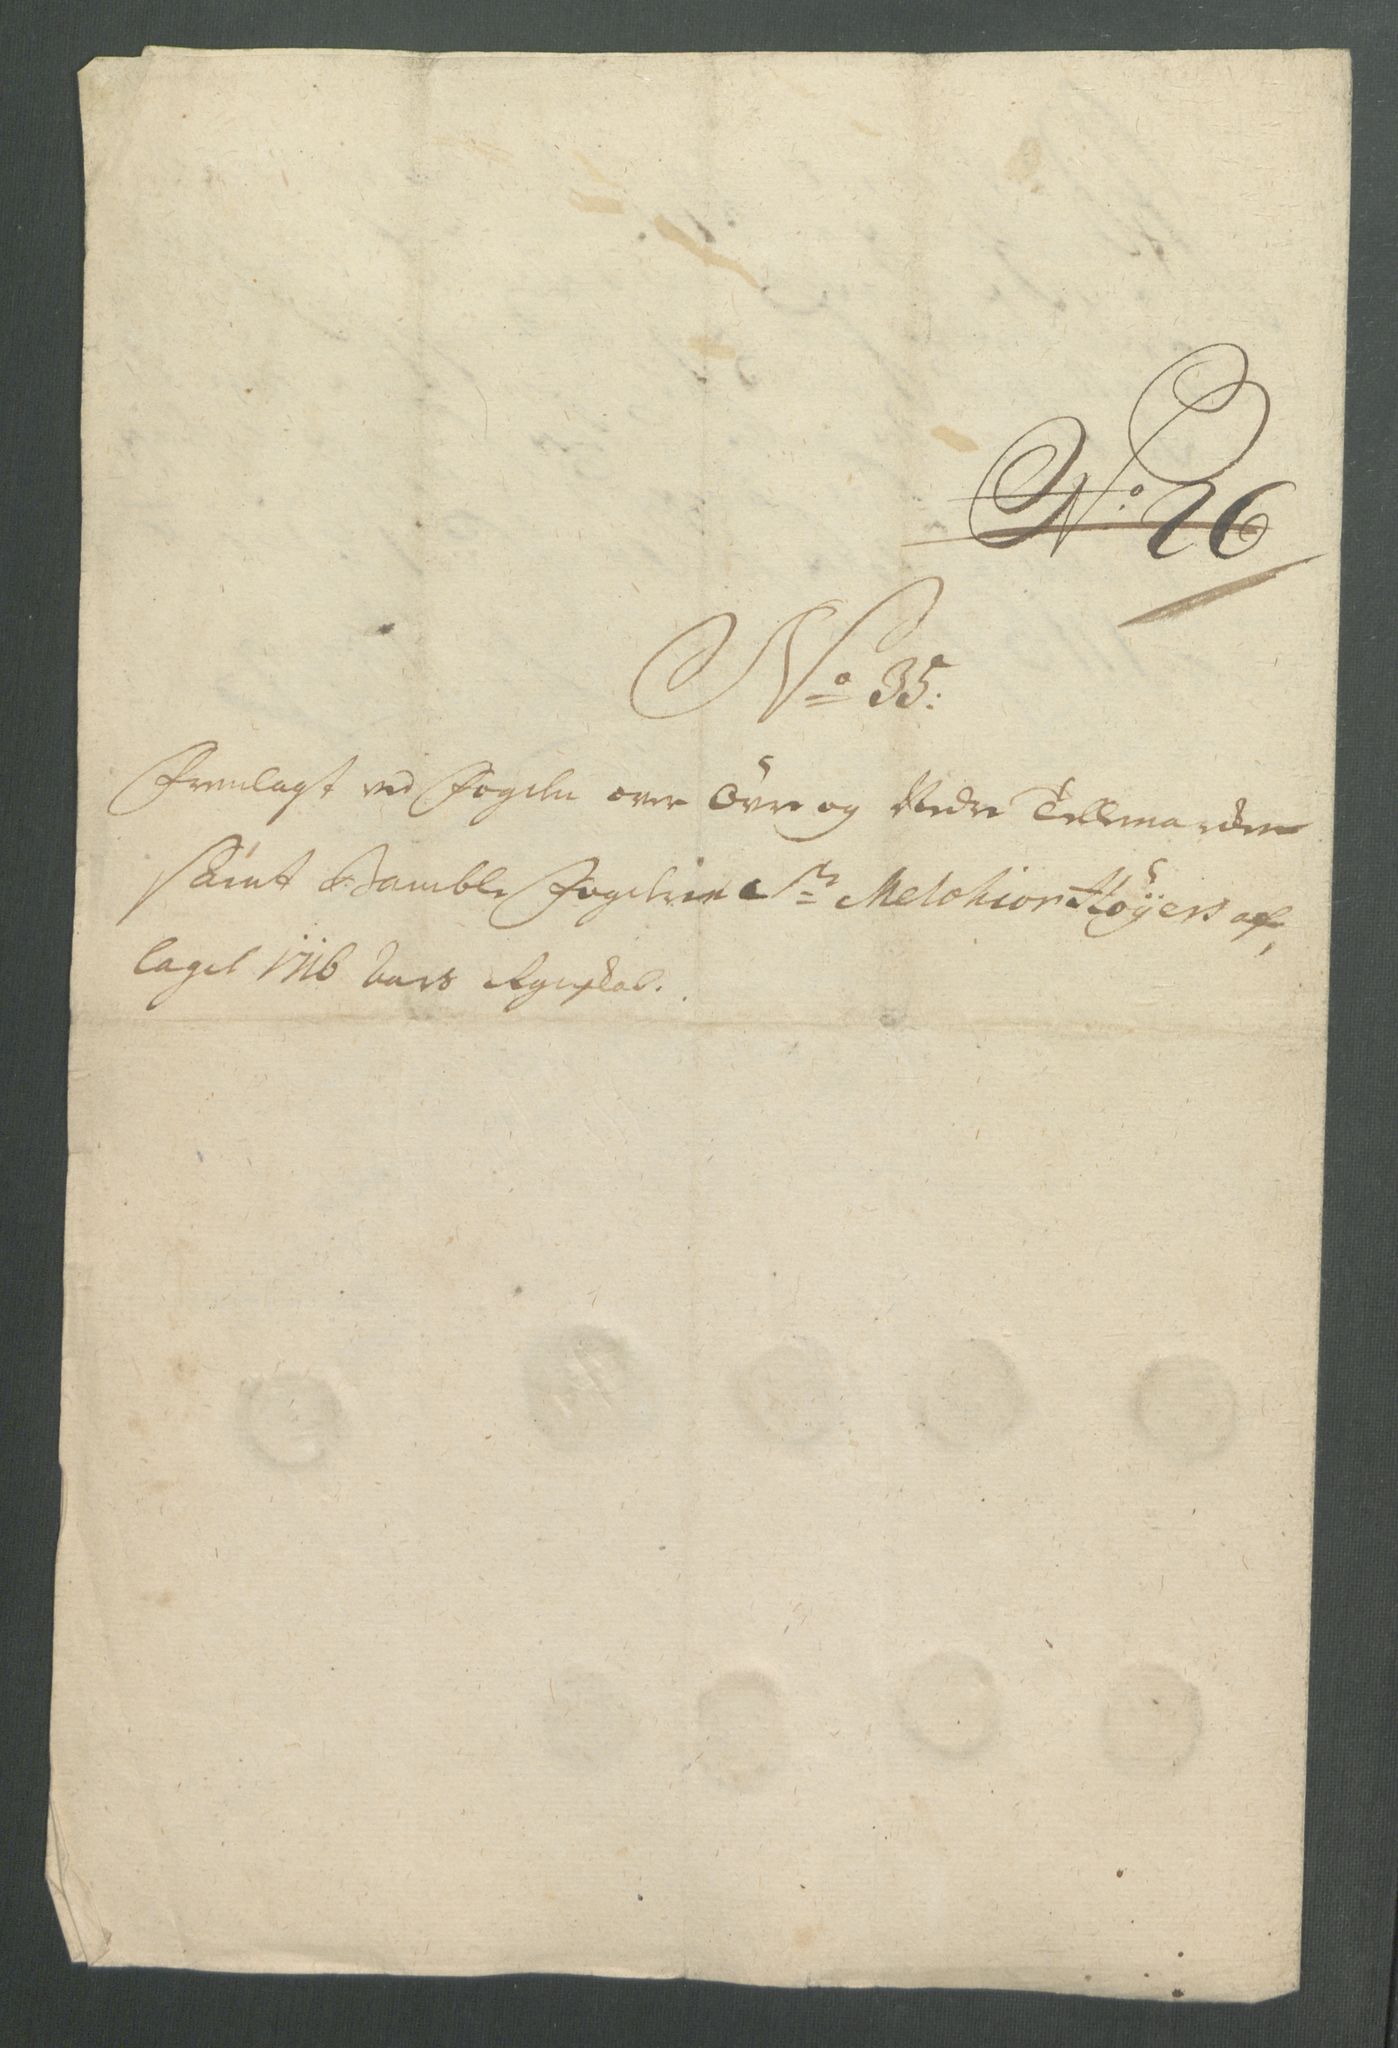 No: 26
No 35:
Fremlagt ved Fogden over Övre og Nedre Tellemarchen
samt Bamble Fogderie Sr Melchior Höÿers af,
lagde 1716 Aars Regnskab.